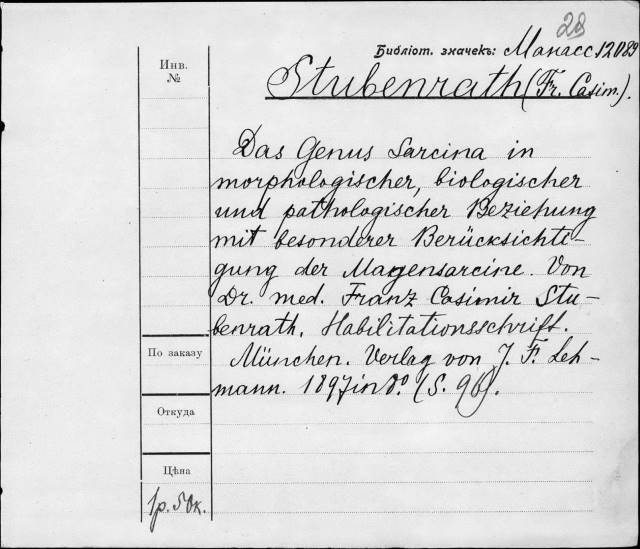 28
Библіот. значекъ: Манасс 12089
Инв.
№
Stubenrath (Fr. Casim.).
Das Genus Sarcina in
morphologischer, biologischer
und pathologischer Beziehung
mit besonderer Berücksichti-
gung der Magensarcine. Von
Dr. med. Franz Casimir Stu-
benrath. Habilitationsschrift.
München. Verlag von J. F. Leh-
mann. 1897 in 8º. (S. 96).
По заказу
Откуда
Цѣна
1р. 50к.